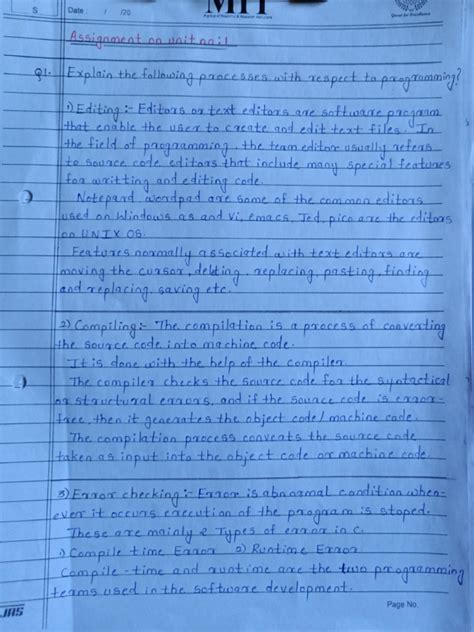 S Date : / /20 MIT
Quest for Excellence
Assignment on unit no:1
Q1. Explain the following processes with respect to programming?
1) Editing :- Editors or text editors are software program
that enable the user to create and edit text files. In
the field of programming, the team editor usually refers
to source code editors that include many special features
for writting and editing code.
Notepard wordpad are some of the common editors
used on Windows as and Vi, emacs, Jed, pico are the editors
on UNIX OS.
Features normally associated with text editors are
moving the cursor, deleting, replacing, pasting, finding
and replacing, saving etc.
2) Compiling:- The compilation is a process of converting
the source code into machine code.
It is done with the help of the compiler.
The compiler checks the source code for the syntactical
or structural errors, and if the source code is error-
free, then it generates the object code/machine code.
The compilation process converts the source code
taken as input into the object code or machine code.
3) Error checking:- Error is abnormal condition when-
ever it occurs execution of the program is stoped.
These are mainly 2 Types of error in C.
1) Compile time Error 2) Runtime Error
Compile-time and runtime are the two programming
terms used in the software development.
JRS Page No.